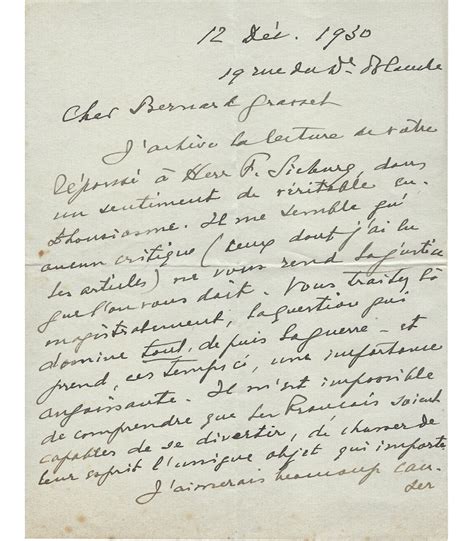 12 Déc. 1930
19 rue du Dr Blanche
Cher Bernard Grasset
J'achève la lecture de votre
Réponse à Herr F. Sieburg, dans
un sentiment de véritable en-
thousiasme. Il me semble qu'
aucun critique (ceux dont j'ai lu
les articles) ne vous rend la justice
que l'on vous doit. Vous traitez là
magistralement, la question qui
domine tout, depuis la guerre - et
prend, ces temps ci, une importance
angoissante. Il m'est impossible
de comprendre que les Français soient
capables de se divertir, de chasser de
leur esprit l'unique objet qui importe
J'aimerais beaucoup cau-
ser